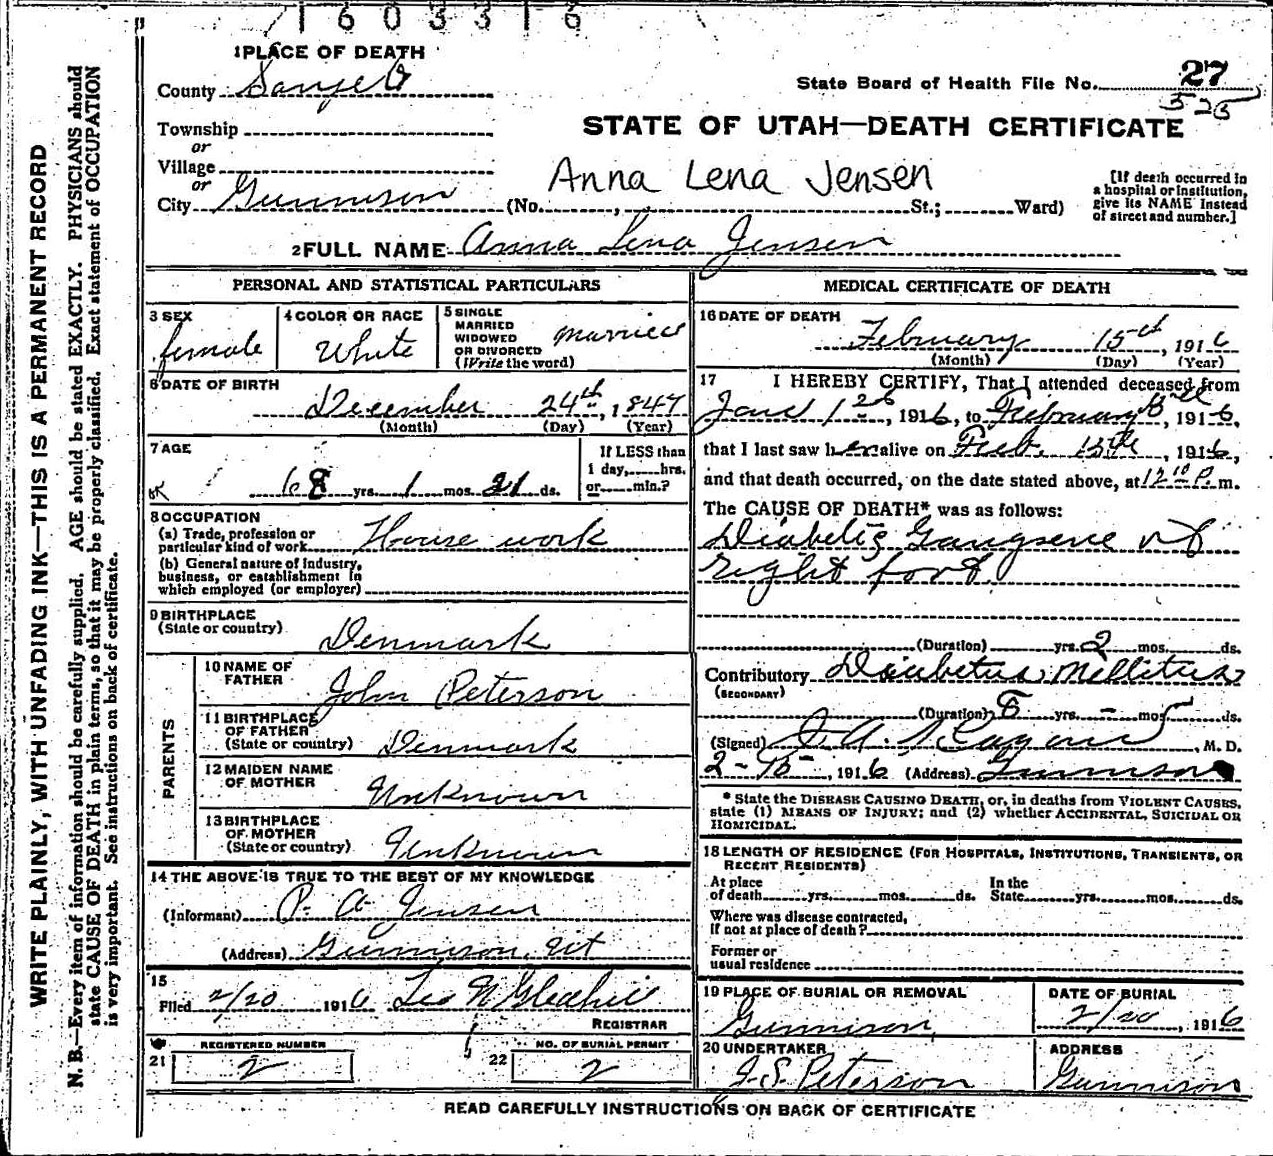 1603316
1 PLACE OF DEATH
County Sanpete
State Board of Health File No. 27
525
Township
or
STATE OF UTAH—DEATH CERTIFICATE
Village
or
Anna Lena Jensen
City Gunnison (No. , St.; Ward)
[If death occurred in a hospital or institution, give its NAME instead of street and number.]
2 FULL NAME Anna Lena Jensen
PERSONAL AND STATISTICAL PARTICULARS
3 SEX
female
4 COLOR OR RACE
White
5 SINGLE
MARRIED
WIDOWED
OR DIVORCED
(Write the word)
Married
6 DATE OF BIRTH
December 24th, 1847
(Month) (Day) (Year)
7 AGE
68 yrs. 1 mos. 21 ds.
If LESS than
1 day, hrs.
or min.?
8 OCCUPATION
(a) Trade, profession or
particular kind of work House work
(b) General nature of Industry,
business, or establishment in
which employed (or employer)
9 BIRTHPLACE
(State or country) Denmark
PARENTS
10 NAME OF
FATHER John Peterson
11 BIRTHPLACE
OF FATHER
(State or country) Denmark
12 MAIDEN NAME
OF MOTHER Unknown
13 BIRTHPLACE
OF MOTHER
(State or country) Unknown
14 THE ABOVE IS TRUE TO THE BEST OF MY KNOWLEDGE
(Informant) P. A. Jensen
(Address) Gunnison, Ut
15
Filed 2/20 1916 Leo N Gledhill
REGISTRAR
21 REGISTERED NUMBER
2
22 NO. OF BURIAL PERMIT
2
MEDICAL CERTIFICATE OF DEATH
16 DATE OF DEATH
February 15th, 1916
(Month) (Day) (Year)
17 I HEREBY CERTIFY, That I attended deceased from
1916, to February 1916,
that I last saw her alive on Feb. 15th, 1916,
and that death occurred, on the date stated above, at 12 P. m.
The CAUSE OF DEATH* was as follows:
Diabetic Gangrene of
right foot.
(Duration) yrs. 2 mos. ds.
Contributory Diabetus Mellitus
(SECONDARY)
(Duration) 8 yrs. - mos. ds.
(Signed) M. D.
2-15, 1916 (Address) Gunnison
* State the DISEASE CAUSING DEATH, or, in deaths from VIOLENT CAUSES,
state (1) MEANS OF INJURY; and (2) whether ACCIDENTAL, SUICIDAL OR
HOMICIDAL.
18 LENGTH OF RESIDENCE (FOR HOSPITALS, INSTITUTIONS, TRANSIENTS, OR
RECENT RESIDENTS)
At place
of death yrs. mos. ds.
In the
State yrs. mos. ds.
Where was disease contracted,
if not at place of death?
Former or
usual residence
19 PLACE OF BURIAL OR REMOVAL
Gunnison,
DATE OF BURIAL
2/20, 1916
20 UNDERTAKER
J. S. Peterson
ADDRESS
Gunnison
READ CAREFULLY INSTRUCTIONS ON BACK OF CERTIFICATE
WRITE PLAINLY, WITH UNFADING INK—THIS IS A PERMANENT RECORD
N. B.—Every item of information should be carefully supplied. AGE should be stated EXACTLY. PHYSICIANS should
state CAUSE OF DEATH in plain terms, so that it may be properly classified. Exact statement of OCCUPATION
is very important. See instructions on back of certificate.